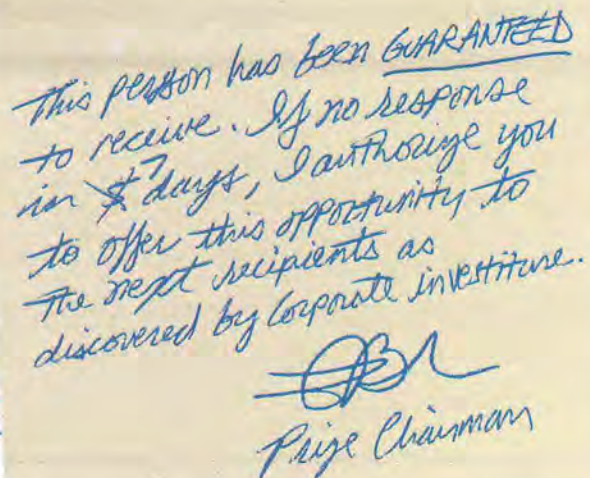 This person has been GUARANTEED
to receive. If no response
in 7 days, I authorize you
to offer this opportunity to
the next recipients as
discovered by Corporate investiture.
Prize Chairman